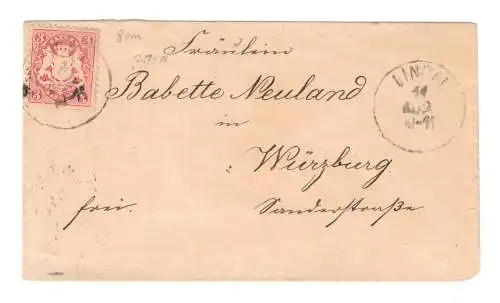 8pm
Fräulein
Babette Neuland
in
Würzburg
frei.
Sanderstraße
LINDAU
14